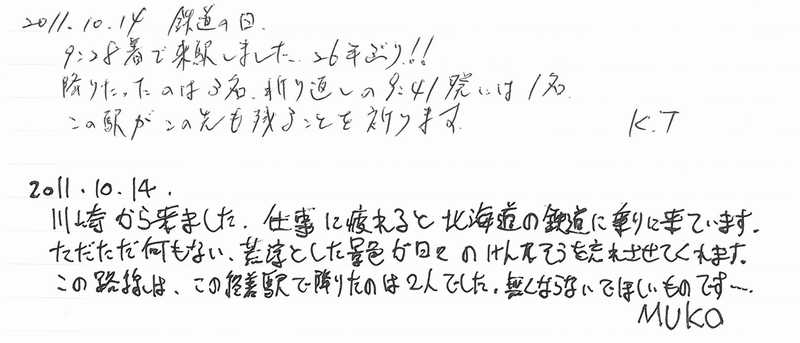 2011.10.14 鉄道の日.
9:28着で来駅しました. 26年ぶり!!
降りたったのは3名. 折り返しの9:41発には1名.
この駅がこの先も残ることを祈ります.
K.T
2011.10.14.
川崎から来ました. 仕事に疲れると北海道の鉄道に乗りに来ています.
ただただ何もない、茫洋とした景色が日々のけんそうを忘れさせてくれます.
この路線は、この終着駅で降りたのは2人でした. 無くならないでほしいものです….
MUKO